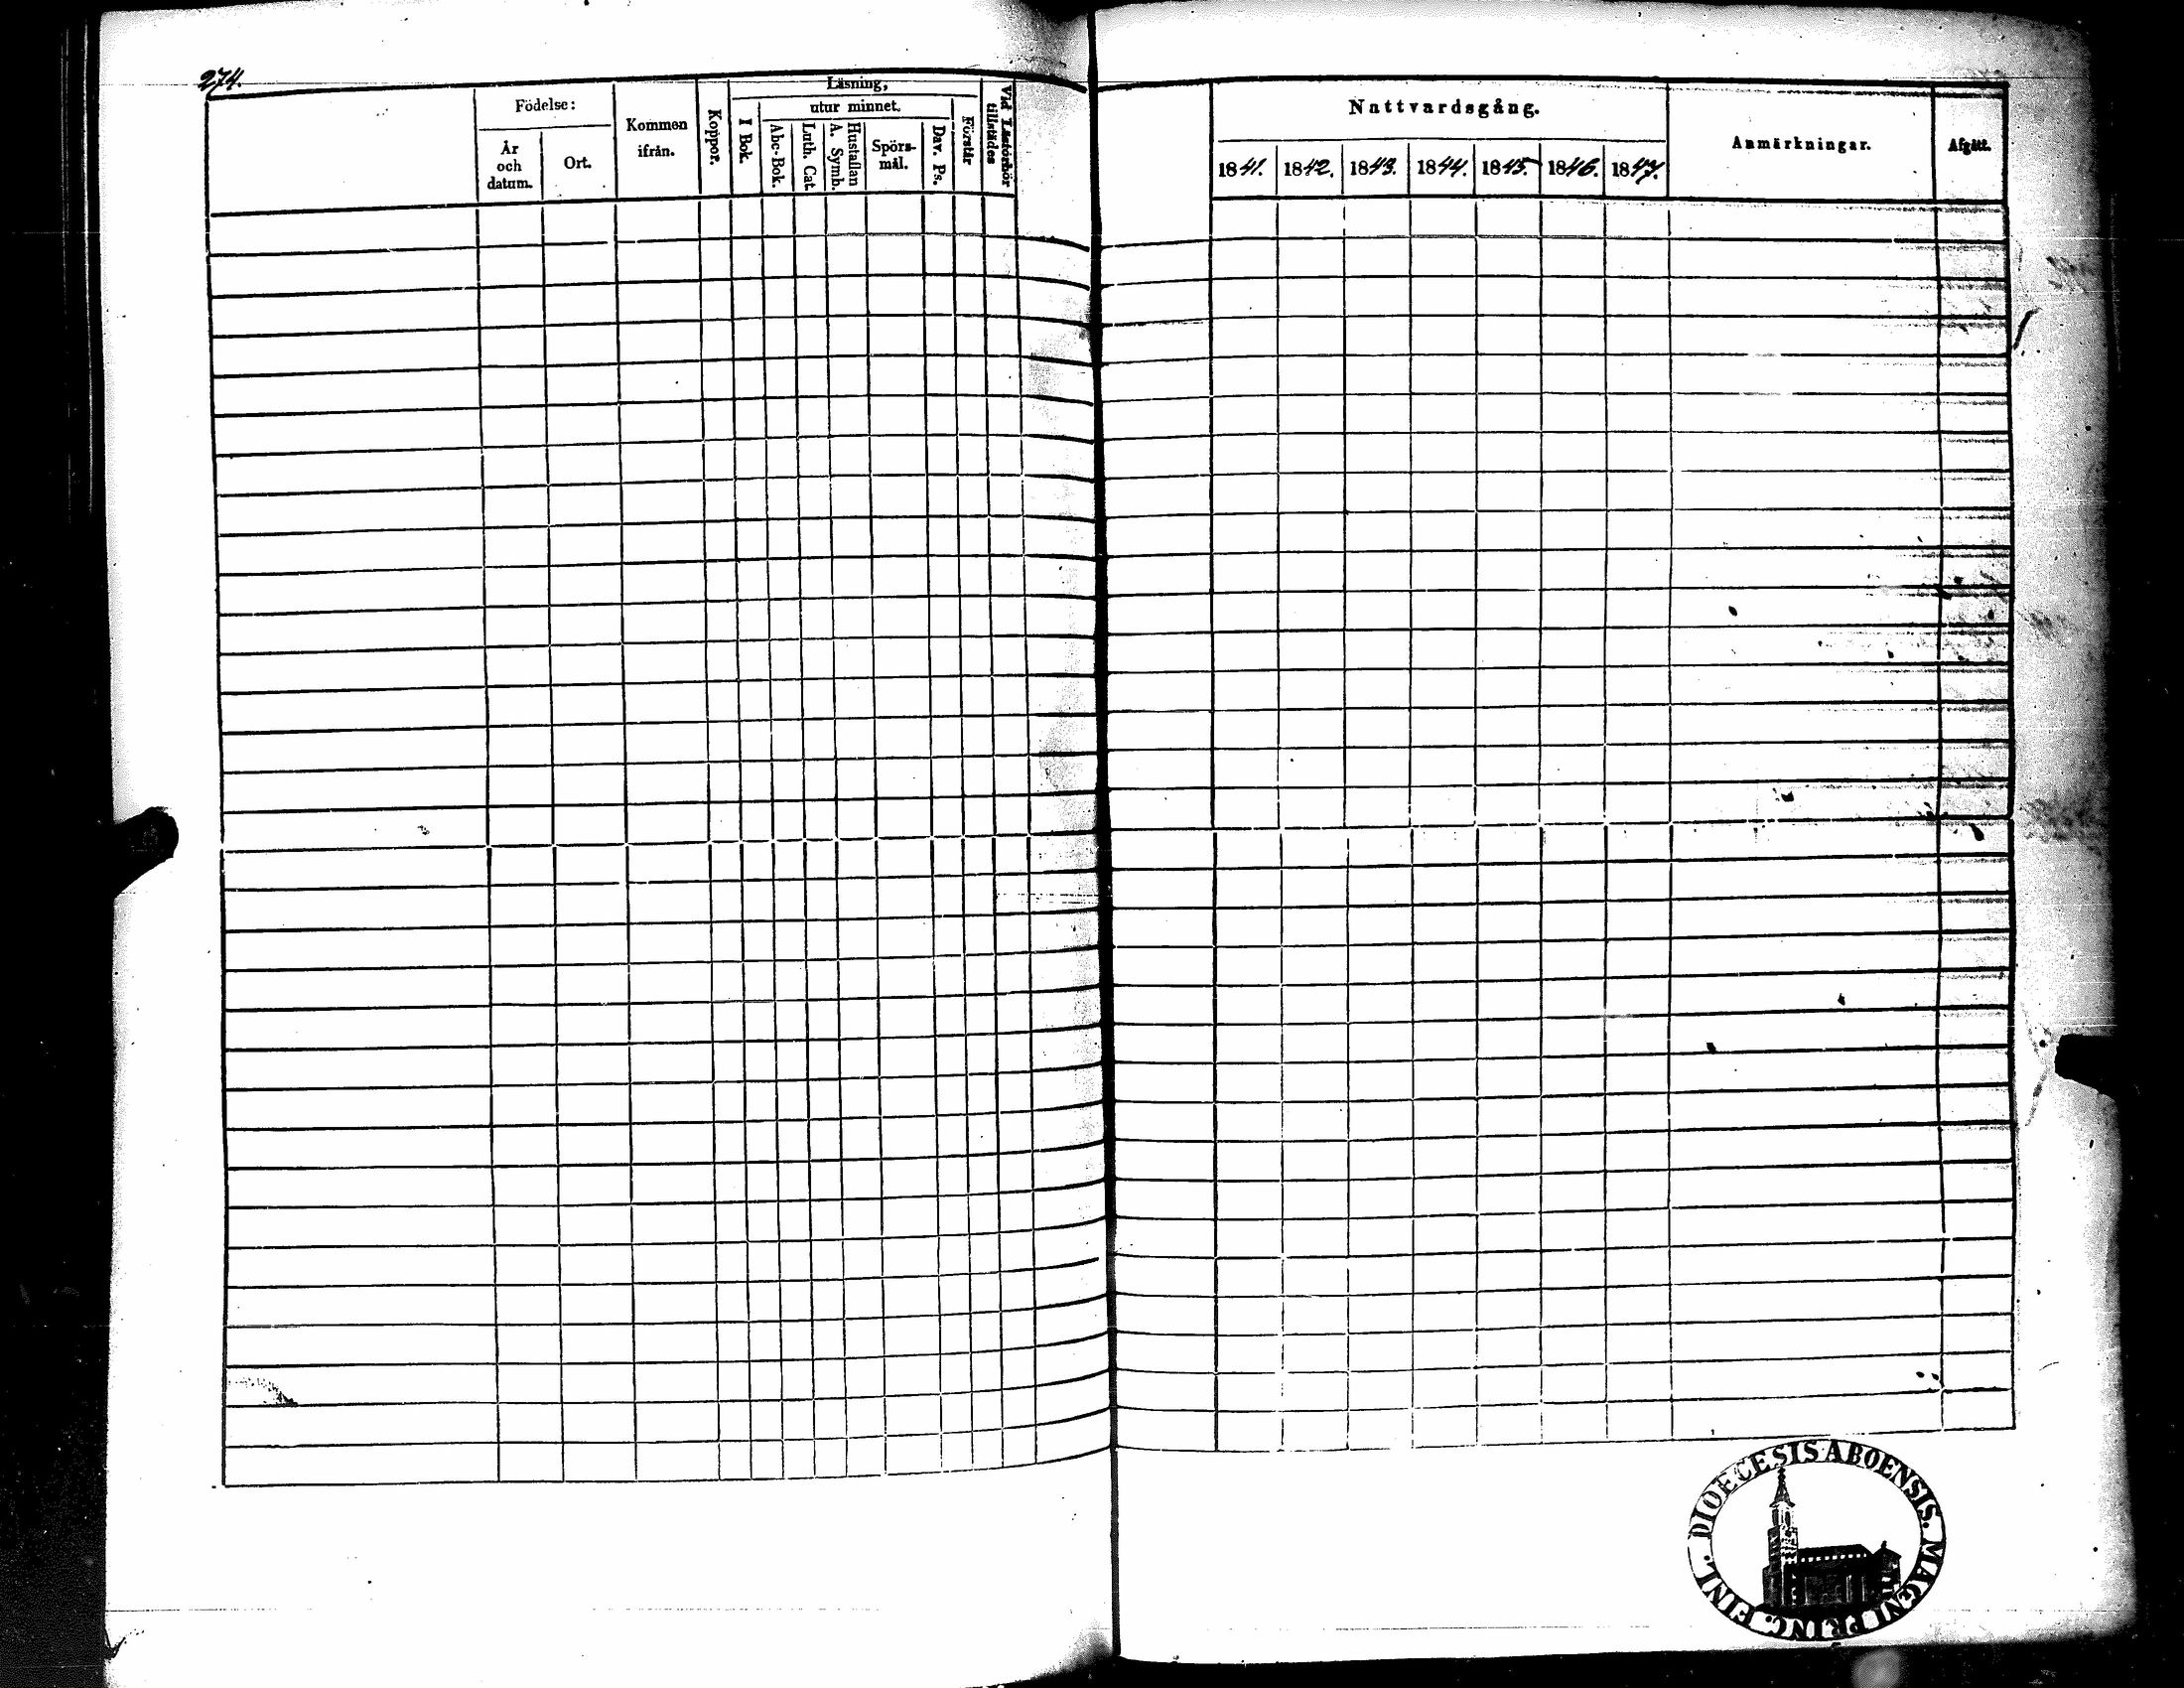 274.
Födelse:
År och datum.
Ort.
Kommen ifrån.
Koppor.
Läsning,
I Bok.
utur minnet.
Abc-Bok.
Luth. Cat.
Hustaflan
A. Symb.
Spörs-
mål.
Dav. Ps.
Förstår
Vid Läsförhör
tillstädes
Nattvardsgång.
1841. 1842. 1843. 1844. 1845. 1846. 1847.
Anmärkningar.
Afgått.
DIOECESIS ABOENSIS. MAGNI PRINC. FINL.